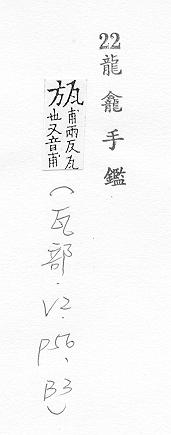 22 龍龕手鑑
瓬
甫兩反瓦
也又音甫
(瓦部.V2.P56、B3)